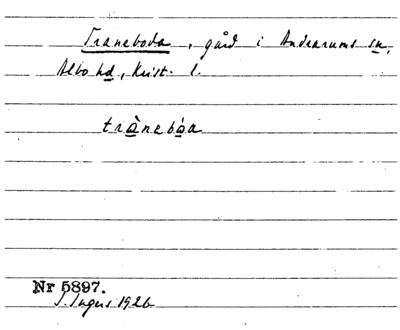 Traneboda, gård i Andrarums sn,
Albo hd, Krist. l.
trànebóa
Nr 5897.
S. Ingers 1926